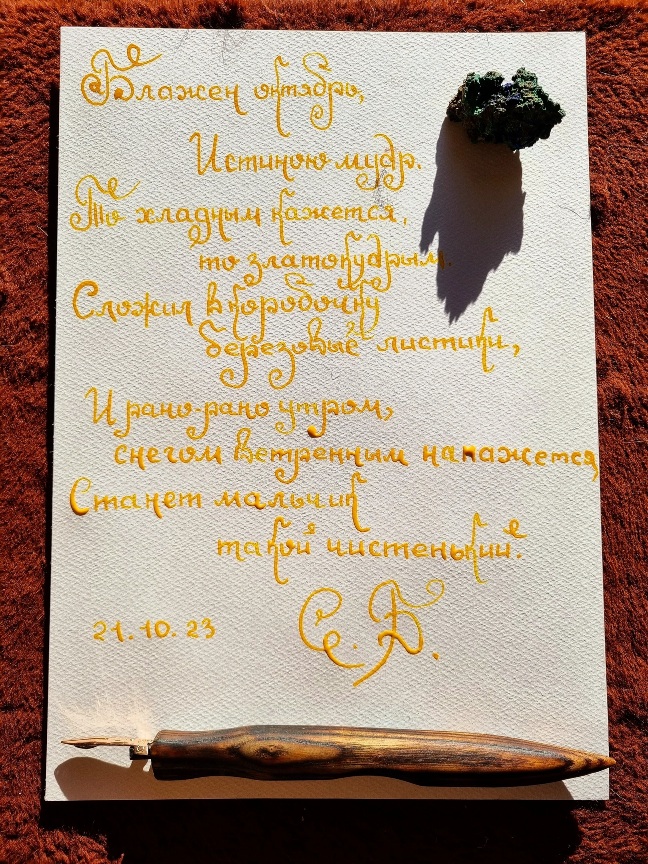 Блажен октябрь,
Истиною мудр.
То хладным кажется,
то златокудрым.
Сложил в коробочку
березовые листики,
И рано-рано утром,
снегом ветренным накажется,
Станет мальчик
такой чистенький.
21.10.23
С. Б.